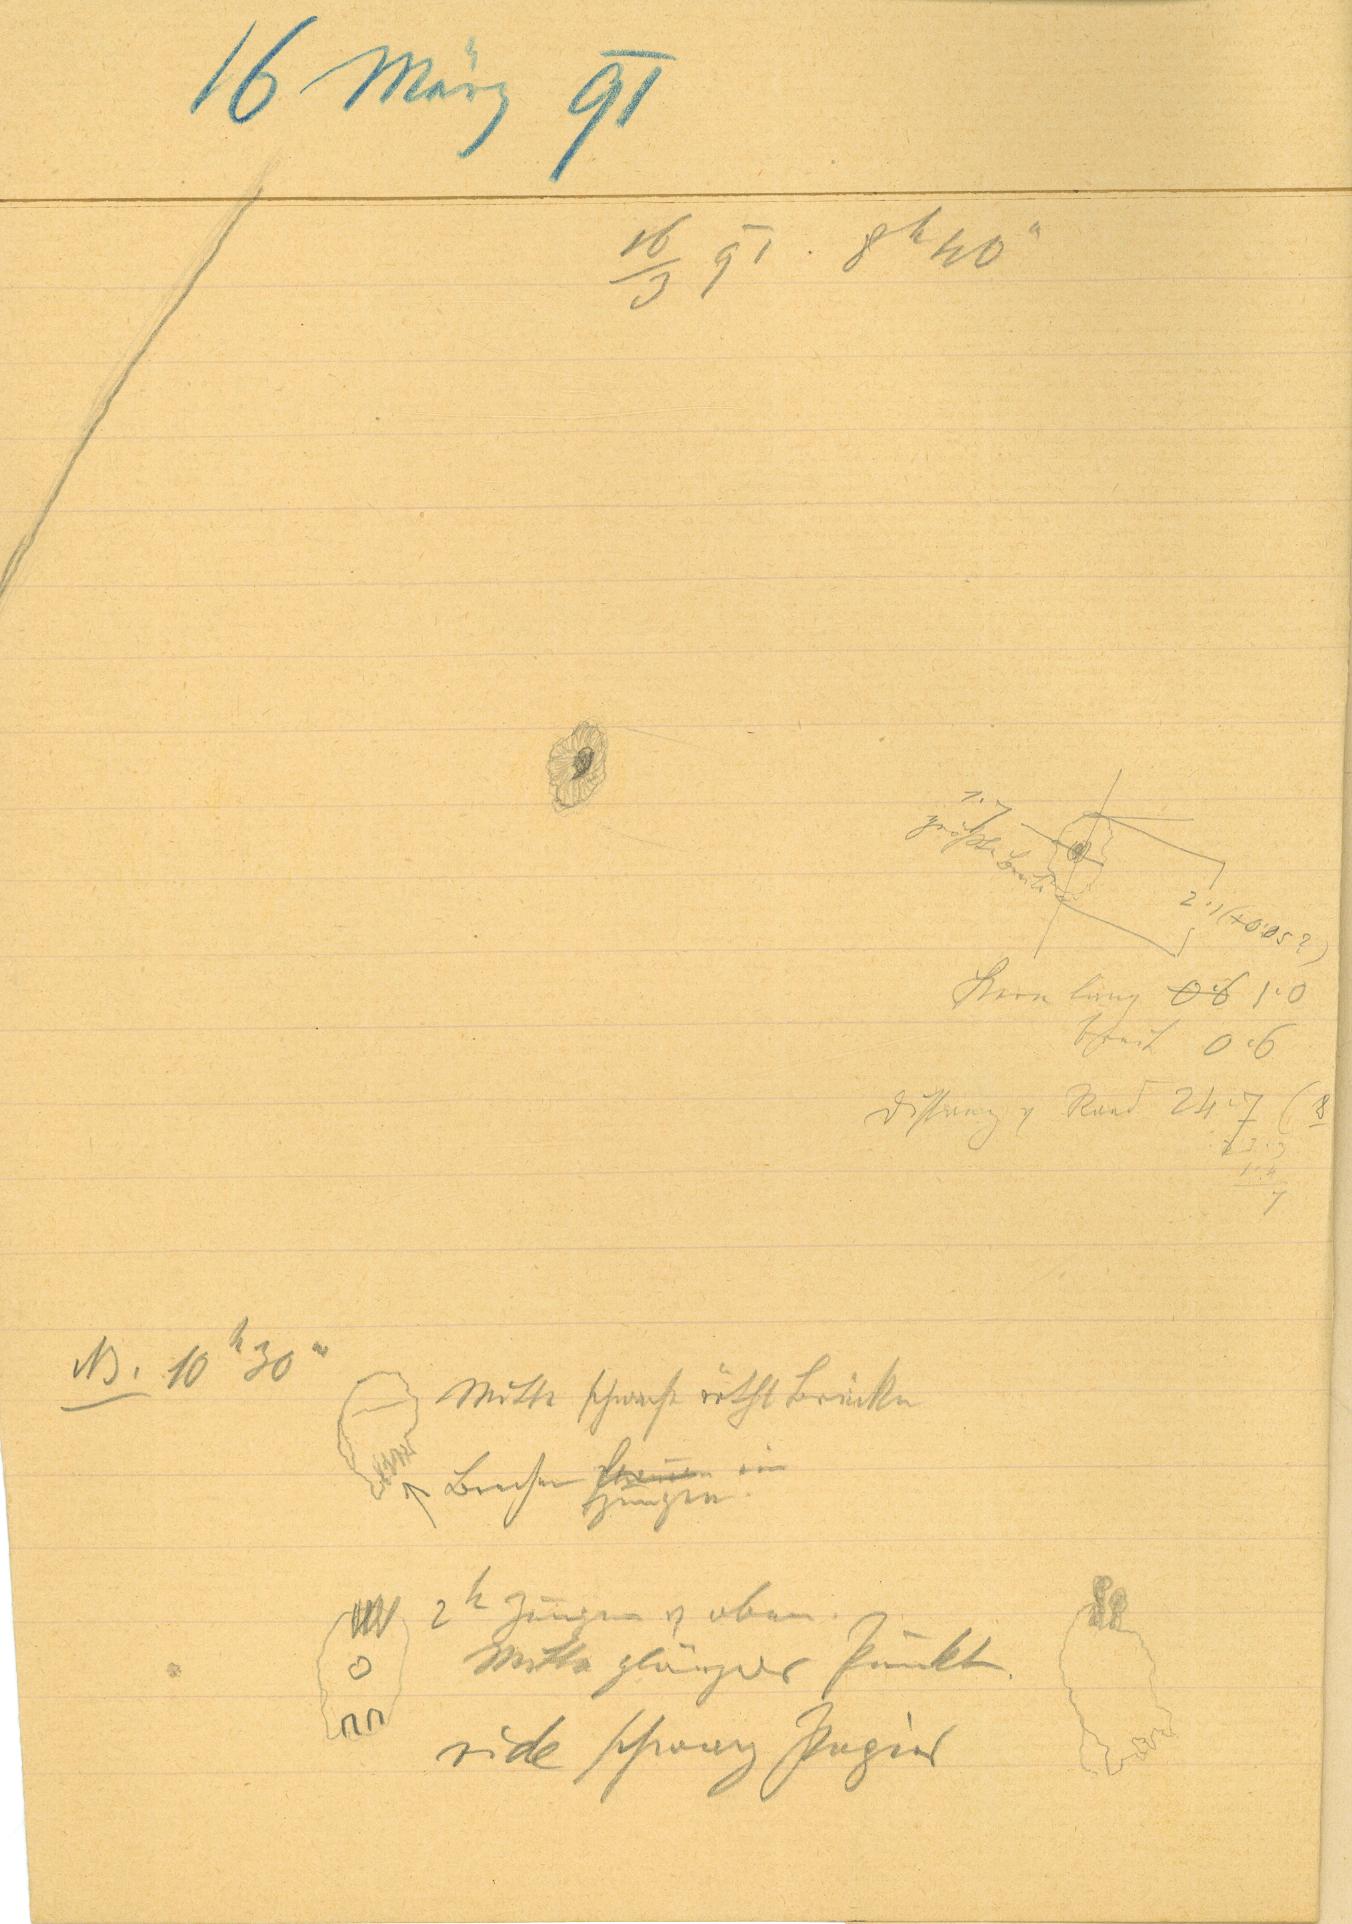 16 März 91
16/3 91. 8h 40m
1.7
größte Breite
2.1 (+0.05?)
Kern lang 0.6 1.0
breit 0.6
Distanz v Rand 24.7 (
23.3
1.4
7
NB. 10h 30m
Mitte schwache röthl Brücke
Brechen ein
Zungen
2h Zungen v oben.
Mitte glänzder Punkt.
vide schwarz Papier